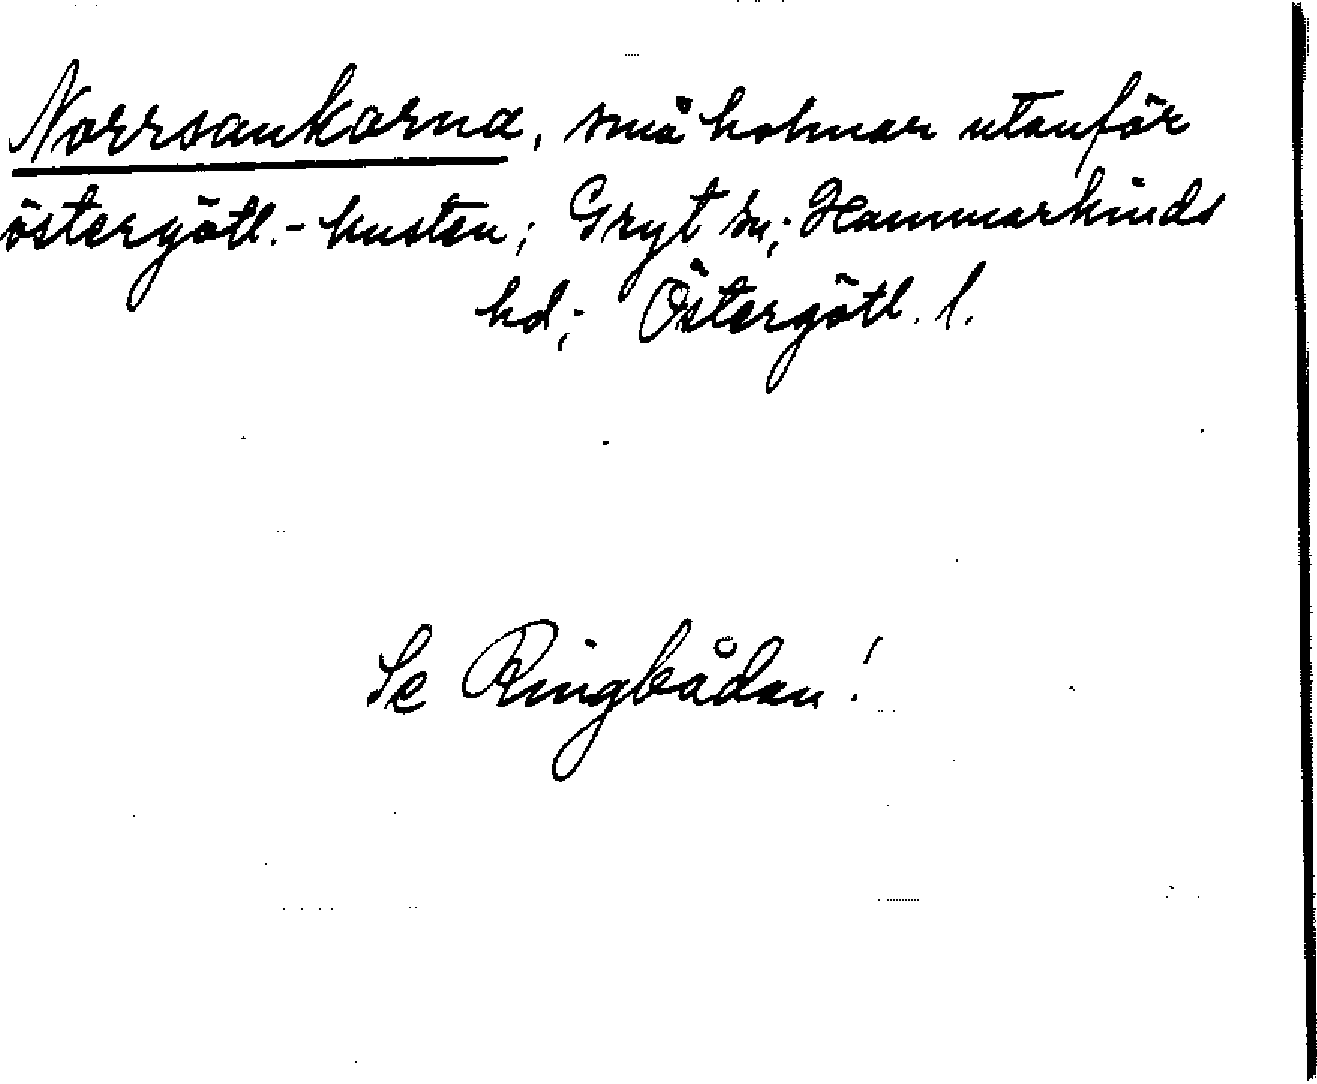 Norrsankorna, små holmar utanför
östergötl.-kusten; Gryt sn; Hammarkinds
hd; Östergötl. l.
Se Ringbådan!